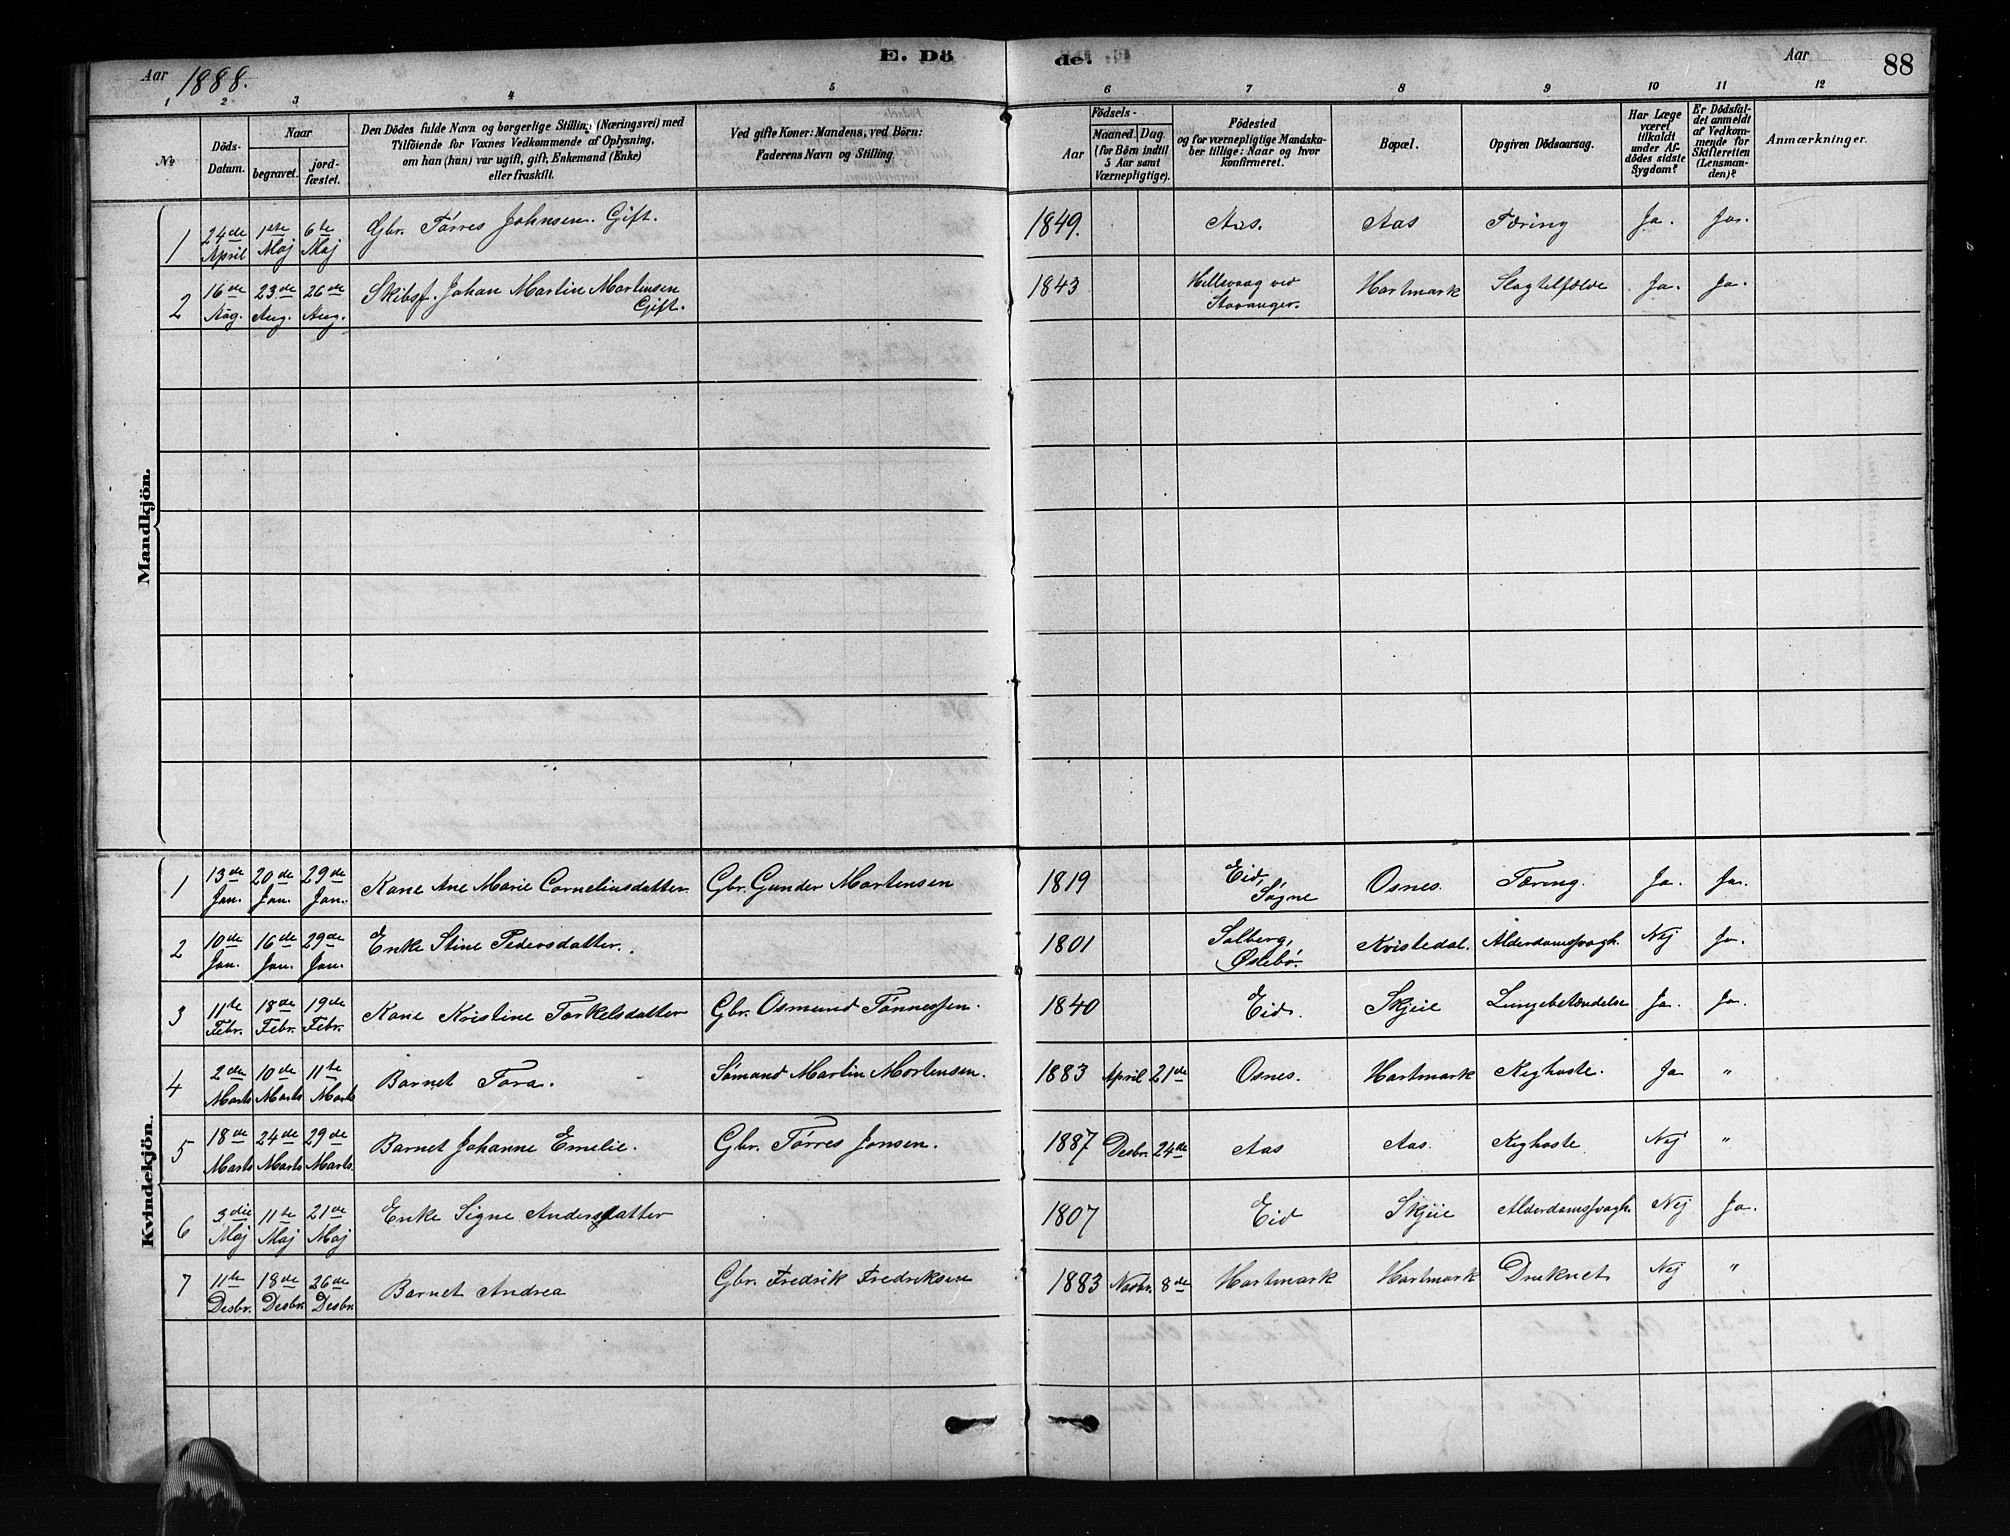 E. Dö de.
Aar 1888. Aar 88
1 2 3 4 5 6 7 8 9 10 11 12
No
Döds-Datum.
Naar
begravet.
jord-fæstet.
Den Dödes fulde Navn og borgerlige Stilling (Næringsvei) med
Tilföiende for Voxnes Vedkommende af Oplysning,
om han (hun) var ugift, gift, Enkemand (Enke)
eller fraskilt.
Ved gifte Koner: Mandens, ved Börn:
Faderens Navn og Stilling.
Födsels-
Aar
Maaned. Dag.
(for Börn indtil
5 Aar samt
Værnepligtige).
Födested
og for værnepligtige Mandska-
ber tillige: Naar og hvor
konfirmeret.
Bopæl.
Opgiven Dödsaarsag.
Har Læge
været
tilkaldt
under Af-
dödes sidste
Sygdom?
Er Dödsfal-
det anmeldt
af Vedkom-
mende for
Skifteretten
(Lensman-
den)?
Anmærkninger.
Mandkjön.
1 24de April 1ste Maj 6te Maj Gbr. Tórres Johnsen. Gift. 1849. Aas. Aas Tæring Ja. Ja.
2 16de Aug. 23de Aug. 26de Aug. Skibsf. Johan Martin Mortensen Gift. 1843 Hillevaag ved Stavanger. Hartmark Slagtilfælde Ja. Ja.
Kvindekjön.
1 13de Jan. 20de Jan. 29de Jan. Kone Ane Marie Corneliusdatter Gbr. Gunder Mortensen 1819 Eid, Søgne Osnes. Tæring. Ja. Ja.
2 10de Jan. 16de Jan. 29de Jan. Enke Stine Pedersdatter. 1801 Solberg, Østebø. Kvistedal. Alderdomssvagh. Nej Ja.
3 11te Febr. 18de Febr. 19de Febr. Kone Kristine Torkelsdatter Gbr. Osmund Tønnessen. 1840 Eid. Skjeie Lungebetændelse Ja. Ja.
4 2den Marts 10de Marts 11te Marts Barnet Tora. Sømand Martin Mortensen. 1883 April 21de Osnes. Hartmark Kighoste. Ja "
5 18de Marts 24de Marts 29de Marts. Barnet Johanne Emelie. Gbr. Tórres Jonsen. 1887 Desbr. 24de Aas Aas. Kighoste Nej "
6 3die Maj 11te Maj 21de Maj Enke Signe Andersdatter 1807 Eid Skjeie Alderdomssvagh. Nej Ja.
7 11te Desbr. 18de Desbr. 26de Desbr. Barnet Andrea Gbr. Fredrik Fredriksen 1883 Novbr. 8de Hartmark Hartmark Druknet Nej "